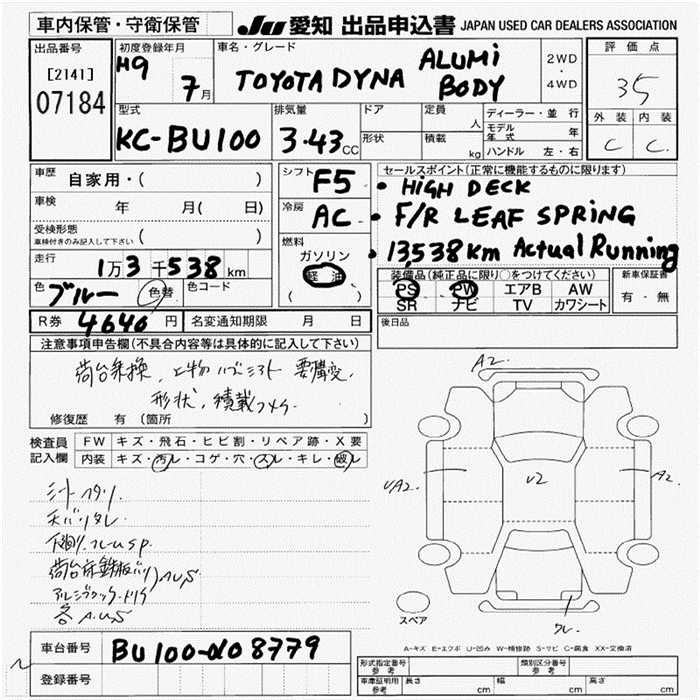 車内保管・守衛保管
JU 愛知 出品申込書 JAPAN USED CAR DEALERS ASSOCIATION
出品番号
[2141]
07184
初度登録年月
H9
7月
車名・グレード
TOYOTA DYNA ALUMI BODY
2WD
・
4WD
評価点
35
外装 内装
C C
型式
KC-BU100
排気量
3.43 CC
ドア
形状
定員
人
積載
kg
ディーラー・並行
モデル年式 年
ハンドル 左・右
車歴
自家用・( )
車検
年 月( 日)
受検形態
車検付きのみ記入して下さい ( )
走行
1万3千538km
色
ブルー
色替
色コード
R券 4640円
名変通知期限 月 日
シフト
F5
冷房
AC
燃料
ガソリン
軽油
( )
セールスポイント(正常に機能するものに限ります)
・HIGH DECK
・F/R LEAF SPRING
・13,538km Actual Running
装備品(純正品に限り○をつけてください)
PS PW エアB AW
SR ナビ TV カワシート
新車保証書
有・無
後日品
注意事項申告欄(不具合内容等は具体的に記入して下さい)
荷台乗換
形状、積載
修復歴 有(箇所 )
検査員記入欄
FW キズ・飛石・ヒビ割・リペア跡・X要
内装 キズ・汚レ・コゲ・穴・スレ・キレ・破レ
各 A.U.S
A2
UA2
U2
A2
スペア
A-キズ E-エクボ U-凹み W-補修跡 S-サビ C-腐食 XX-交換済
車台番号 BU100-0008779
登録番号
形式指定番号
参考
類別区分番号
参考
車庫証明用
参考
長さ cm
幅 cm
高さ cm